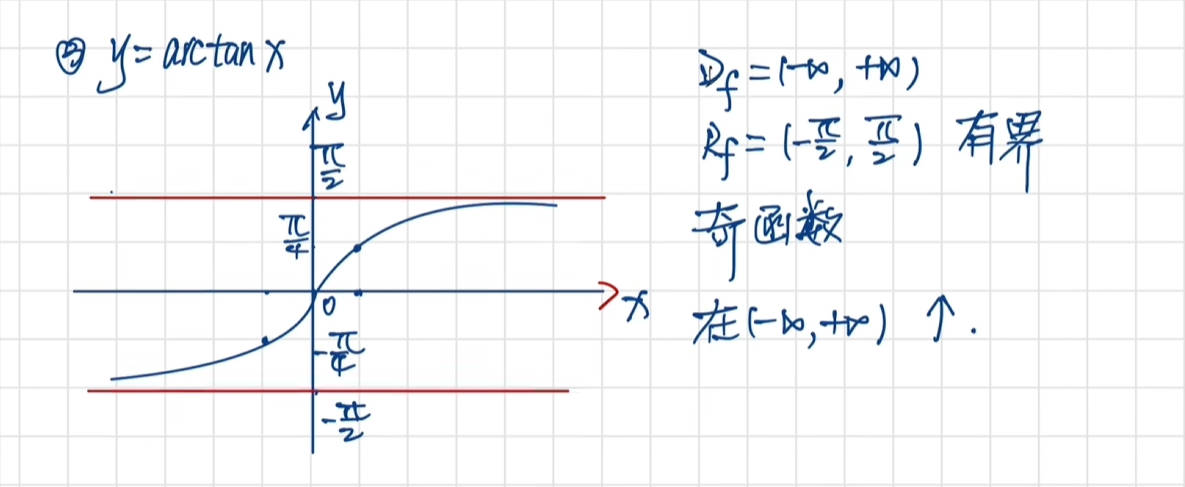 ③ y=arctan x
y
π/2
π/4
0
x
-π/4
-π/2
D_f=(-∞, +∞)
R_f=(-π/2, π/2) 有界
奇函数
在(-∞,+∞) ↑.